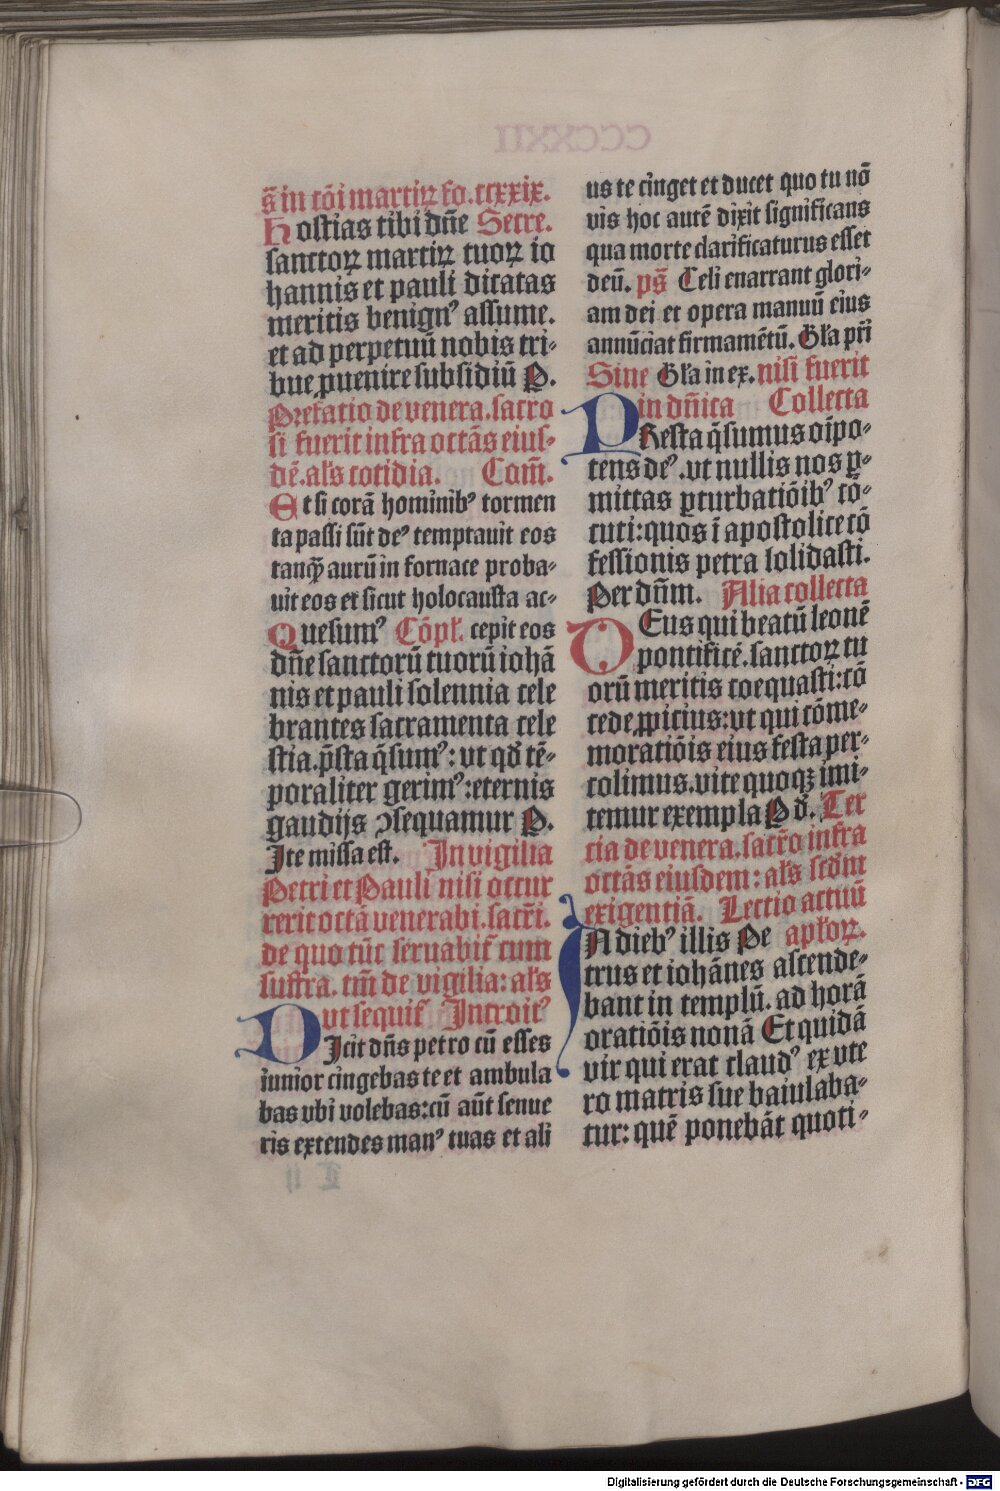 s̄ in cōi martiꝝ fo. ccxxix.
Hostias tibi dn̄e Secre.
sanctoꝝ martiꝝ tuoꝝ io
hannis et pauli dicatas
meritis benignꝰ assume.
et ad perpetuū nobis tri-
bue ꝓuenire subsidiū P.
Prefatio de venera. sacro
si fuerit infra octās eius-
dē. als̄ cotidia. Com̄.
Et si corā hominibꝰ tormen
ta passi sūt deꝰ temptauit eos
tanqȝ aurū in fornace proba-
uit eos et sicut holocausta ac-
Quesumꝰ Cōpl̄. cepit eos
dn̄e sanctorū tuorū iohā
nis et pauli solennia cele
brantes sacramenta cele
stia. p̄sta q̄sumꝰ: vt qd̄ tē-
poraliter gerimꝰ: eternis
gaudijs ꝯsequamur P.
Ite missa est. In vigilia
Petri et Pauli nisi occur
rerit octā venerabi. sacri.
de quo tūc seruabit̄ cum
suffra. tm̄ de vigilia: als̄
vt sequit̄ Introitꝰ
Dicit dn̄s petro cū esses
iunior cingebas te et ambula
bas vbi volebas: cū aūt senue
ris extendes manꝰ tuas et ali
us te cinget et ducet quo tu nō
vis hoc autē dixit significans
qua morte clarificaturus esset
deū. ps̄ Celi enarrant glori-
am dei et opera manuū eius
annūciat firmamētū. Gl̄a pr̄i
Sine Gl̄a in ex. nisi fuerit
in dn̄ica Collecta
PResta q̄sumus oīpo-
tens deꝰ. vt nullis nos ꝑ-
mittas ꝑturbatiōibꝰ cō-
cuti: quos ī apostolice cō
fessionis petra solidasti.
Per dn̄m. Alia collecta
DEus qui beatū leonē
pontificē. sanctoꝝ tu
orū meritis coequasti: cō
cede ꝓpicius: vt qui cōme-
moratiōis eius festa per-
colimus. vite quoqȝ imi-
temur exempla P d̄. Ter
cia de venera. sacro infra
octās eiusdem: als̄ scd̄m
exigentiā. Lectio actuū
IN diebꝰ illis Pe apl̄oꝝ.
trus et iohānes ascende-
bant in templū. ad horā
oratiōis nonā Et quidā
vir qui erat claudꝰ ex vte
ro matris sue baiulaba-
tur: quē ponebāt quoti-
Digitalisierung gefördert durch die Deutsche Forschungsgemeinschaft - DFG